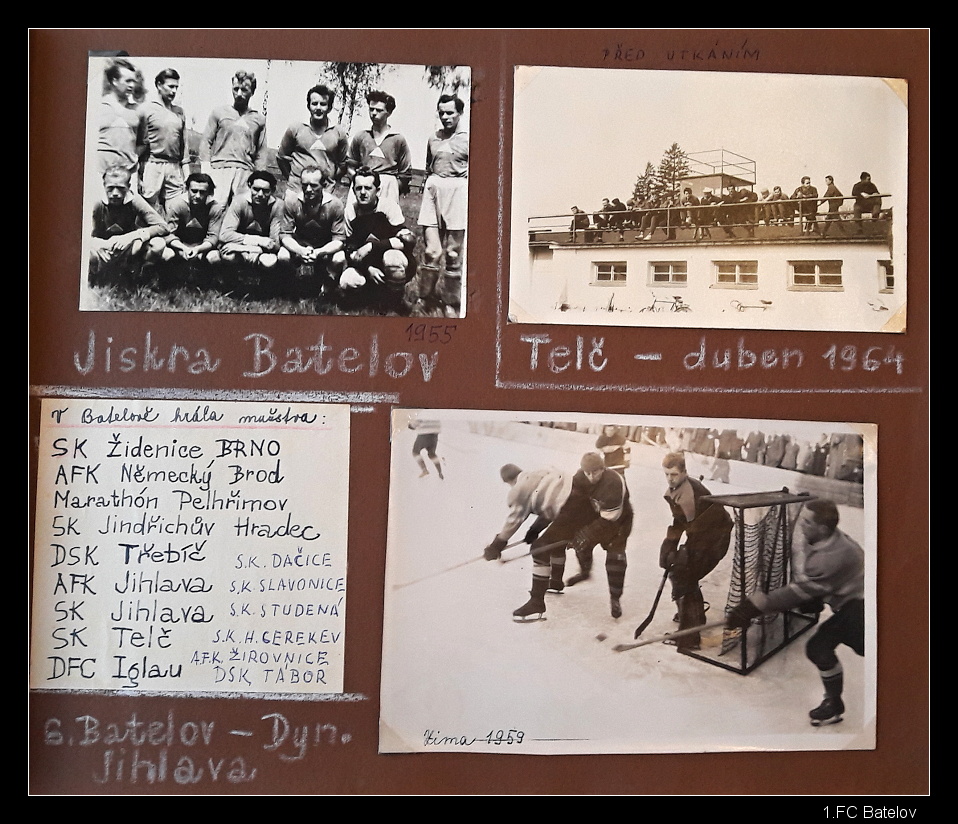 PŘED UTKÁNÍM
1955
Jiskra Batelov
Telč – duben 1964
V Batelově hrála mužstva:
SK Židenice BRNO
AFK Německý Brod
Marathón Pelhřimov
SK Jindřichův Hradec
DSK Třebíč
S.K. DAČICE
AFK Jihlava
S.K. SLAVONICE
SK Jihlava
S.K. STUDENÁ
SK Telč
S.K. H. CEREKEV
DFC Iglau
A.F.K. ŽIROVNICE
DSK TÁBOR
Zima 1959
S. Batelov – Dyn.
Jihlava
1.FC Batelov